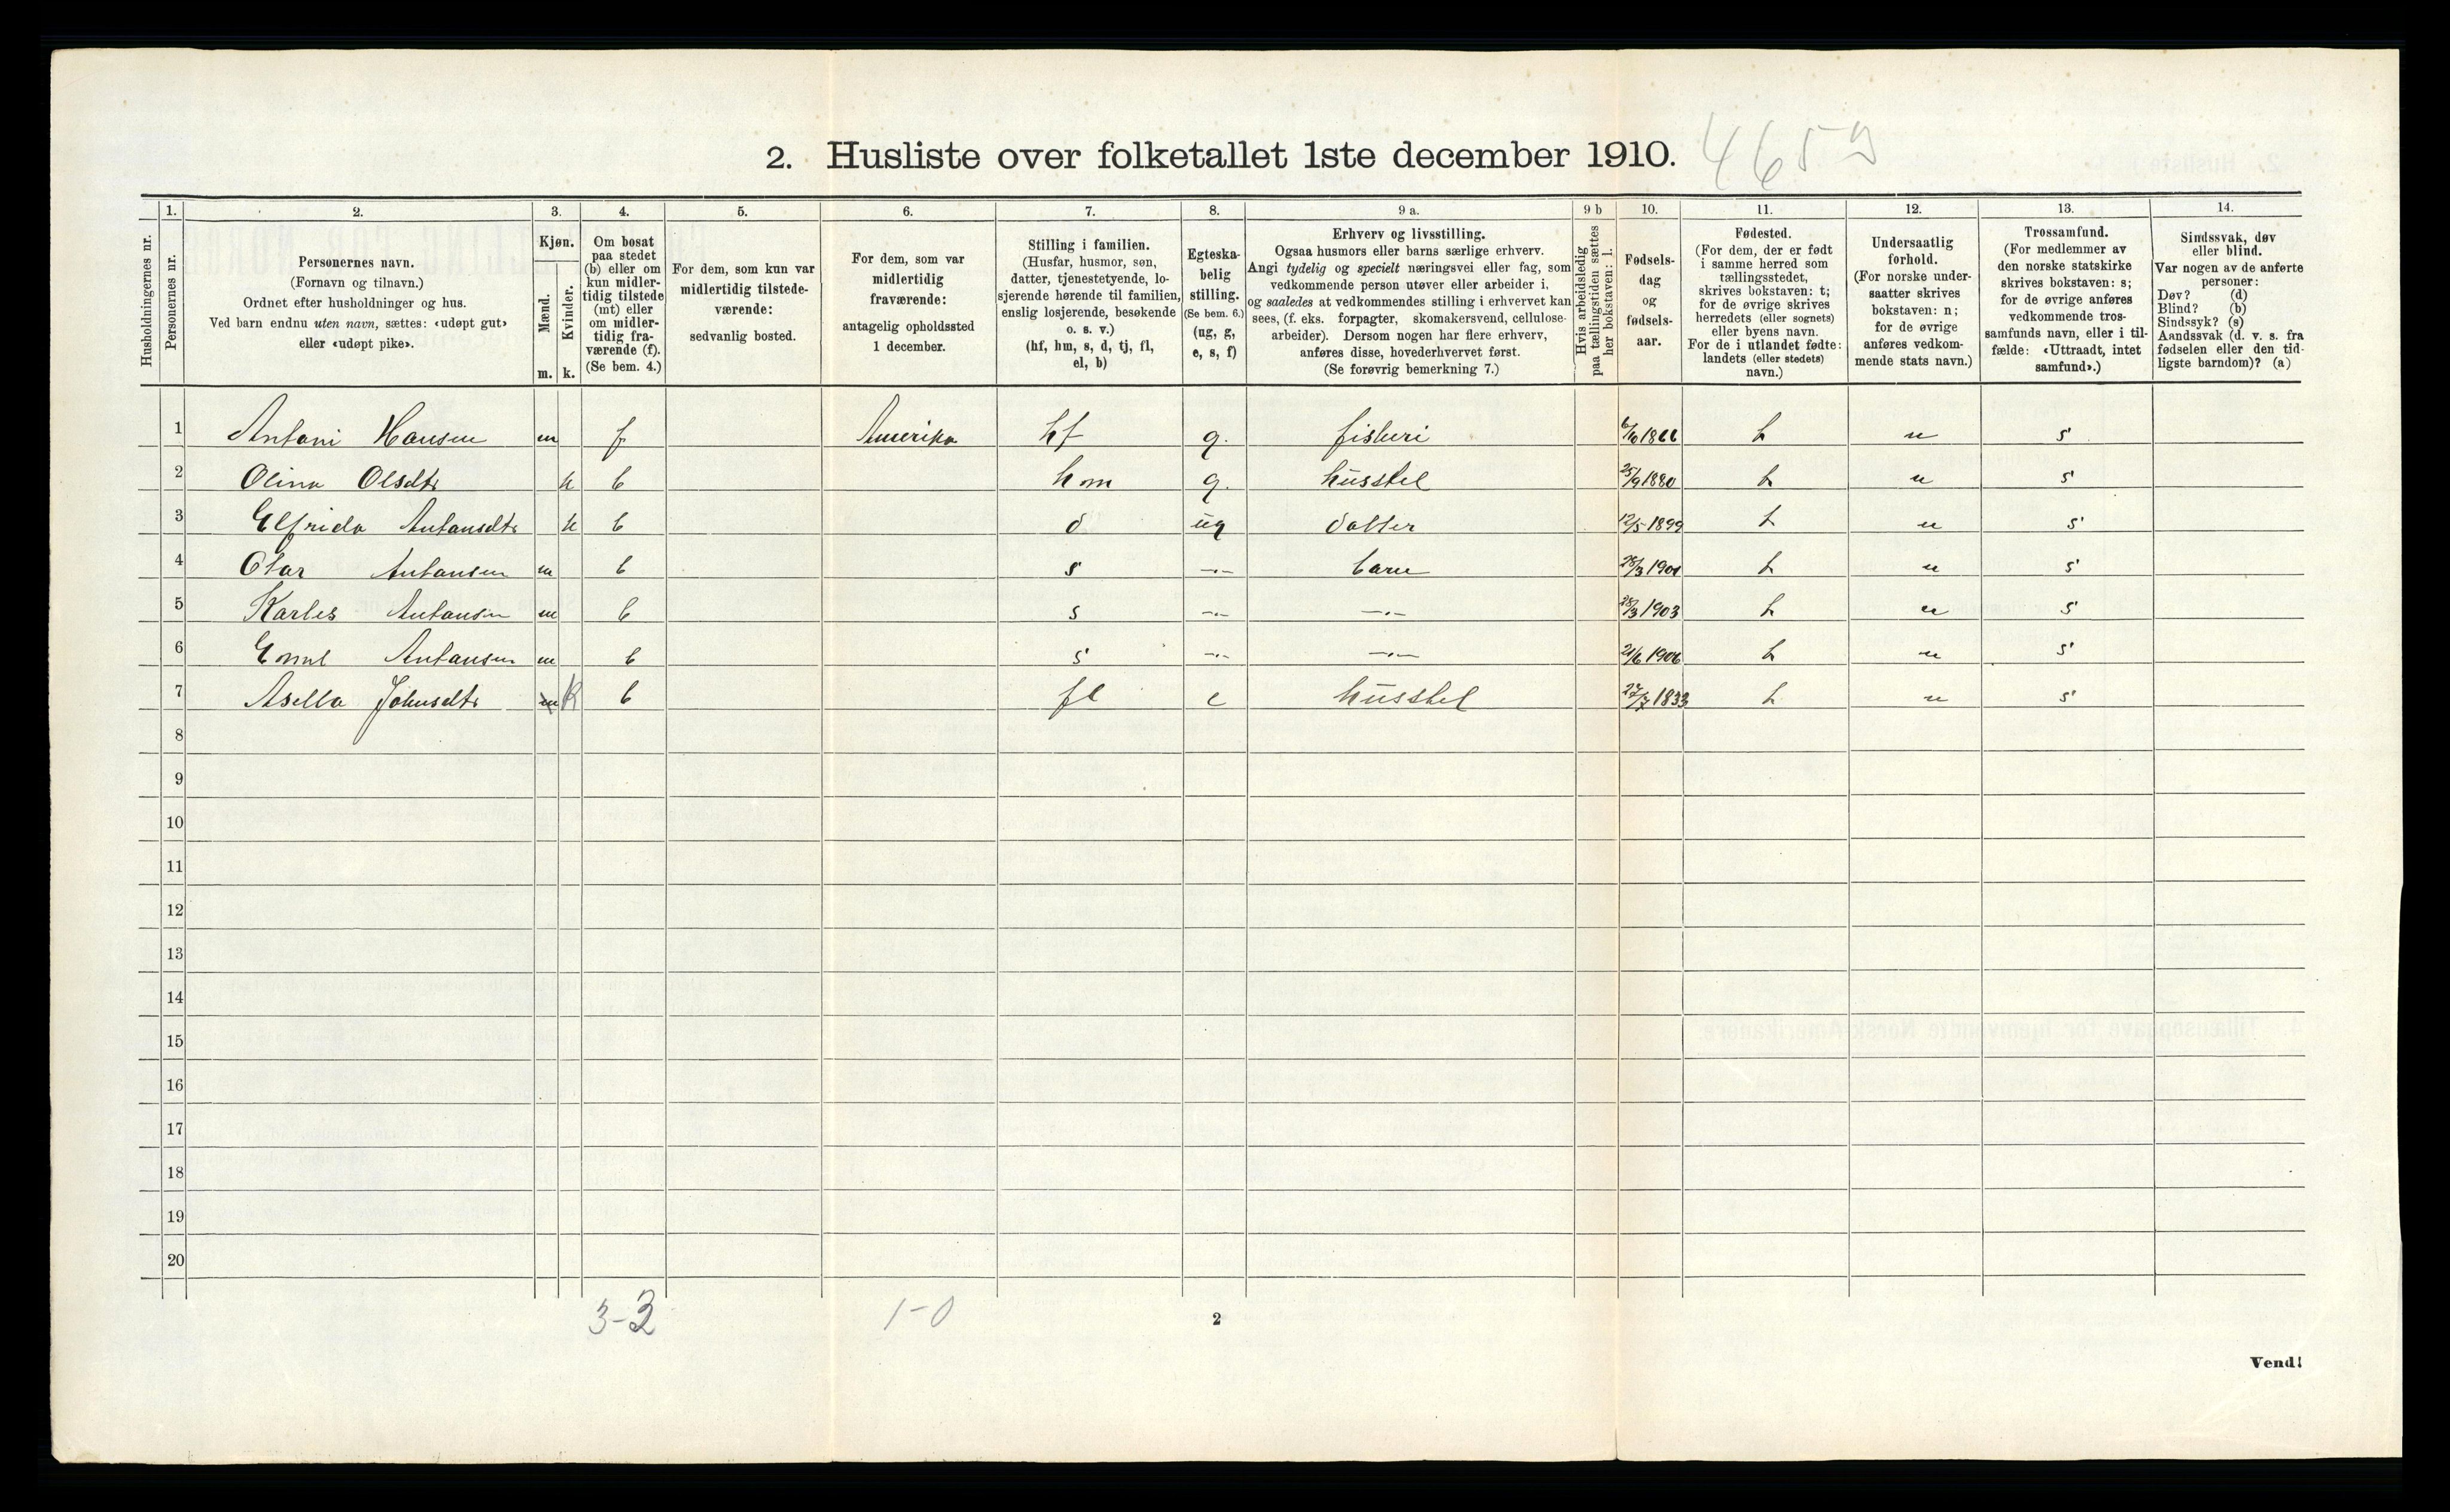 2. Husliste over folketallet 1ste december 1910. 4659
Husholdningernes nr.
1. Personernes nr.
2. Personernes navn. (Fornavn og tilnavn.) Ordnet efter husholdninger og hus. Ved barn endnu uten navn, sættes: «udøpt gut» eller «udøpt pike».
3. Kjøn. Mænd. m. Kvinder. k.
4. Om bosat paa stedet (b) eller om kun midlertidig tilstede (mt) eller om midlertidig fraværende (f). (Se bem. 4.)
5. For dem, som kun var midlertidig tilstedeværende: sedvanlig bosted.
6. For dem, som var midlertidig fraværende: antagelig opholdssted 1 december.
7. Stilling i familien. (Husfar, husmor, søn, datter, tjenestetyende, losjerende hørende til familien, enslig losjerende, besøkende o. s. v.) (hf, hm, s, d, tj, fl, el, b)
8. Egteskabelig stilling. (Se bem. 6.) (ug, g, e, s, f)
9 a. Erhverv og livsstilling. Ogsaa husmors eller barns særlige erhverv. Angi tydelig og specielt næringsvei eller fag, som vedkommende person utøver eller arbeider i, og saaledes at vedkommendes stilling i erhvervet kan sees, (f. eks. forpagter, skomakersvend, cellulosearbeider). Dersom nogen har flere erhverv, anføres disse, hovederhvervet først. (Se forøvrig bemerkning 7.)
9 b Hvis arbeidsledig paa tællingstiden sættes her bokstaven: l.
10. Fødselsdag og fødselsaar.
11. Fødested. (For dem, der er født i samme herred som tællingsstedet, skrives bokstaven: t; for de øvrige skrives herredets (eller sognets) eller byens navn. For de i utlandet fødte: landets (eller stedets) navn.)
12. Undersaatlig forhold. (For norske undersaatter skrives bokstaven: n; for de øvrige anføres vedkommende stats navn.)
13. Trossamfund. (For medlemmer av den norske statskirke skrives bokstaven: s; for de øvrige anføres vedkommende trossamfunds navn, eller i tilfælde: «Uttraadt, intet samfund».)
14. Sindssvak, døv eller blind. Var nogen av de anførte personer: Døv? (d) Blind? (b) Sindssyk? (s) Aandssvak (d. v. s. fra fødselen eller den tidligste barndom)? (a)
1 Antoni Hansen m f Amerika hf g. fisheri 6/10 1866 t n s
2 Olina Olsdtr k b hm g. husstel 25/9 1880 t n s
3 Elfrida Antonsdtr k b d ug datter 12/5 1899 t n s
4 Olar Antonsen m b s -"- barn 28/3 1901 t n s
5 Karles Antonsen m b s -"- -"- 28/3 1903 t n s
6 Emil Antonsen m b s -"- -"- 21/6 1906 t n s
7 Asella Johnsdtr m K b fl e husstel 27/7 1833 t n s
8
9
10
11
12
13
14
15
16
17
18
19
20
3-3 1-0
2
Vend!